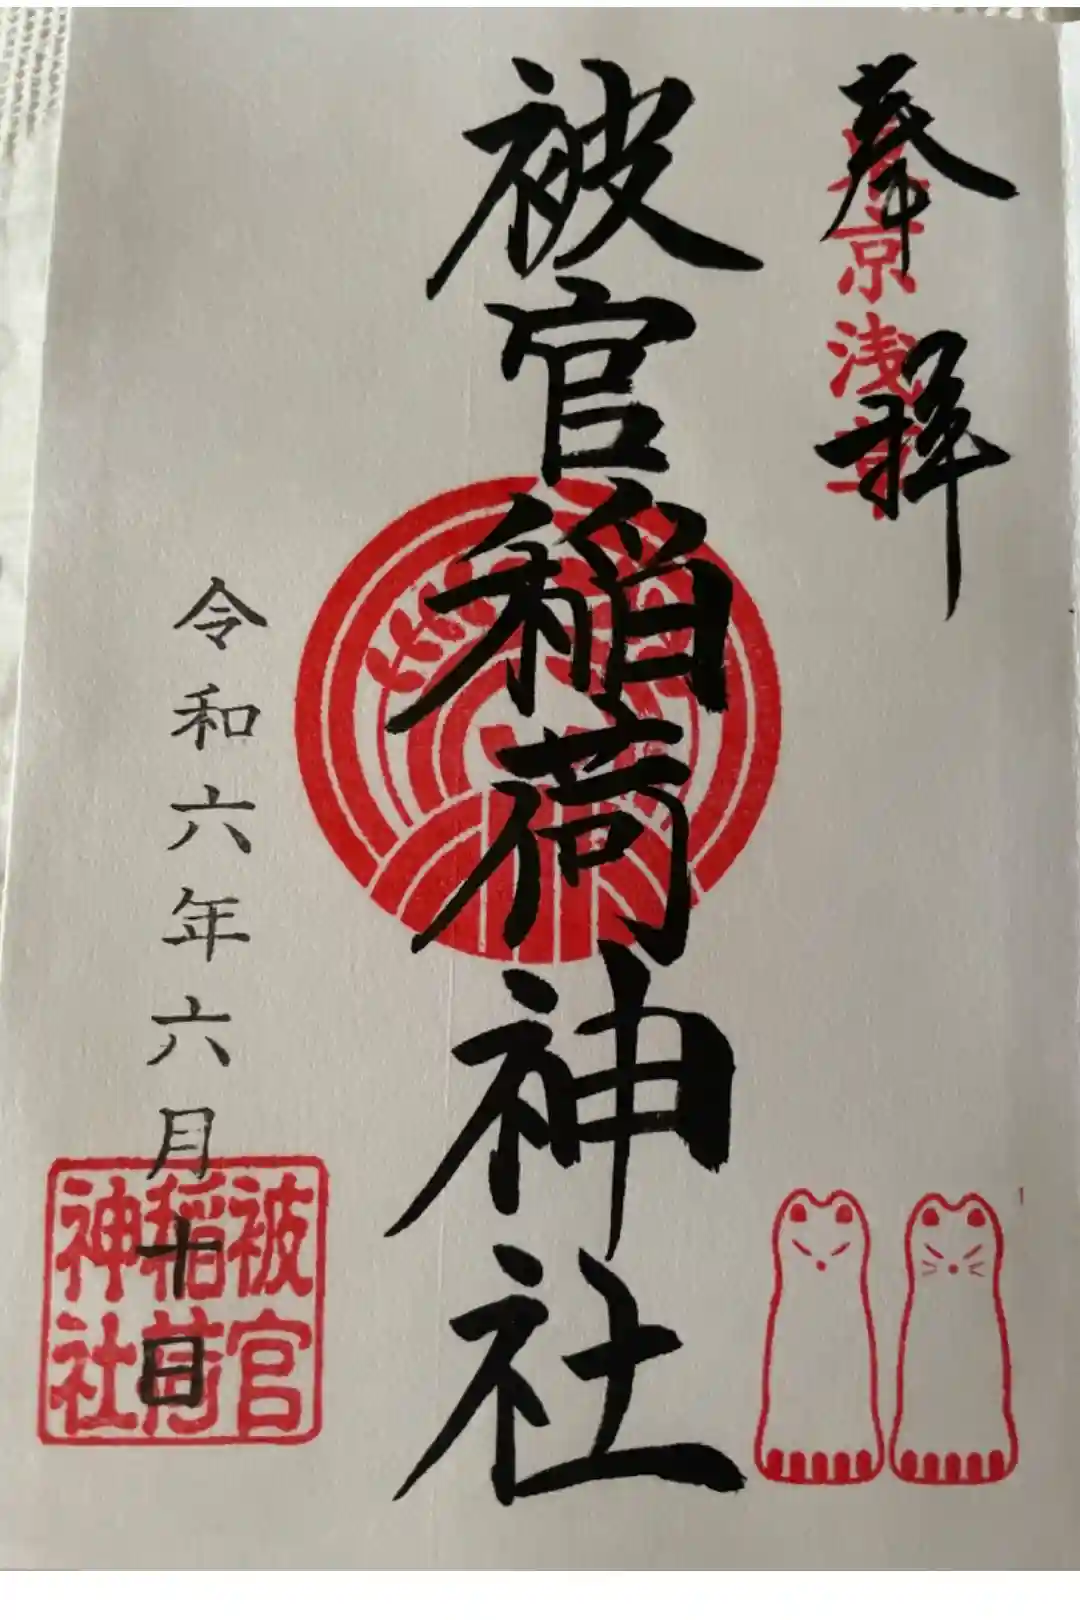 奉拝
東京浅草
被官稲荷神社
令和六年六月十日
被官
稲荷
神社